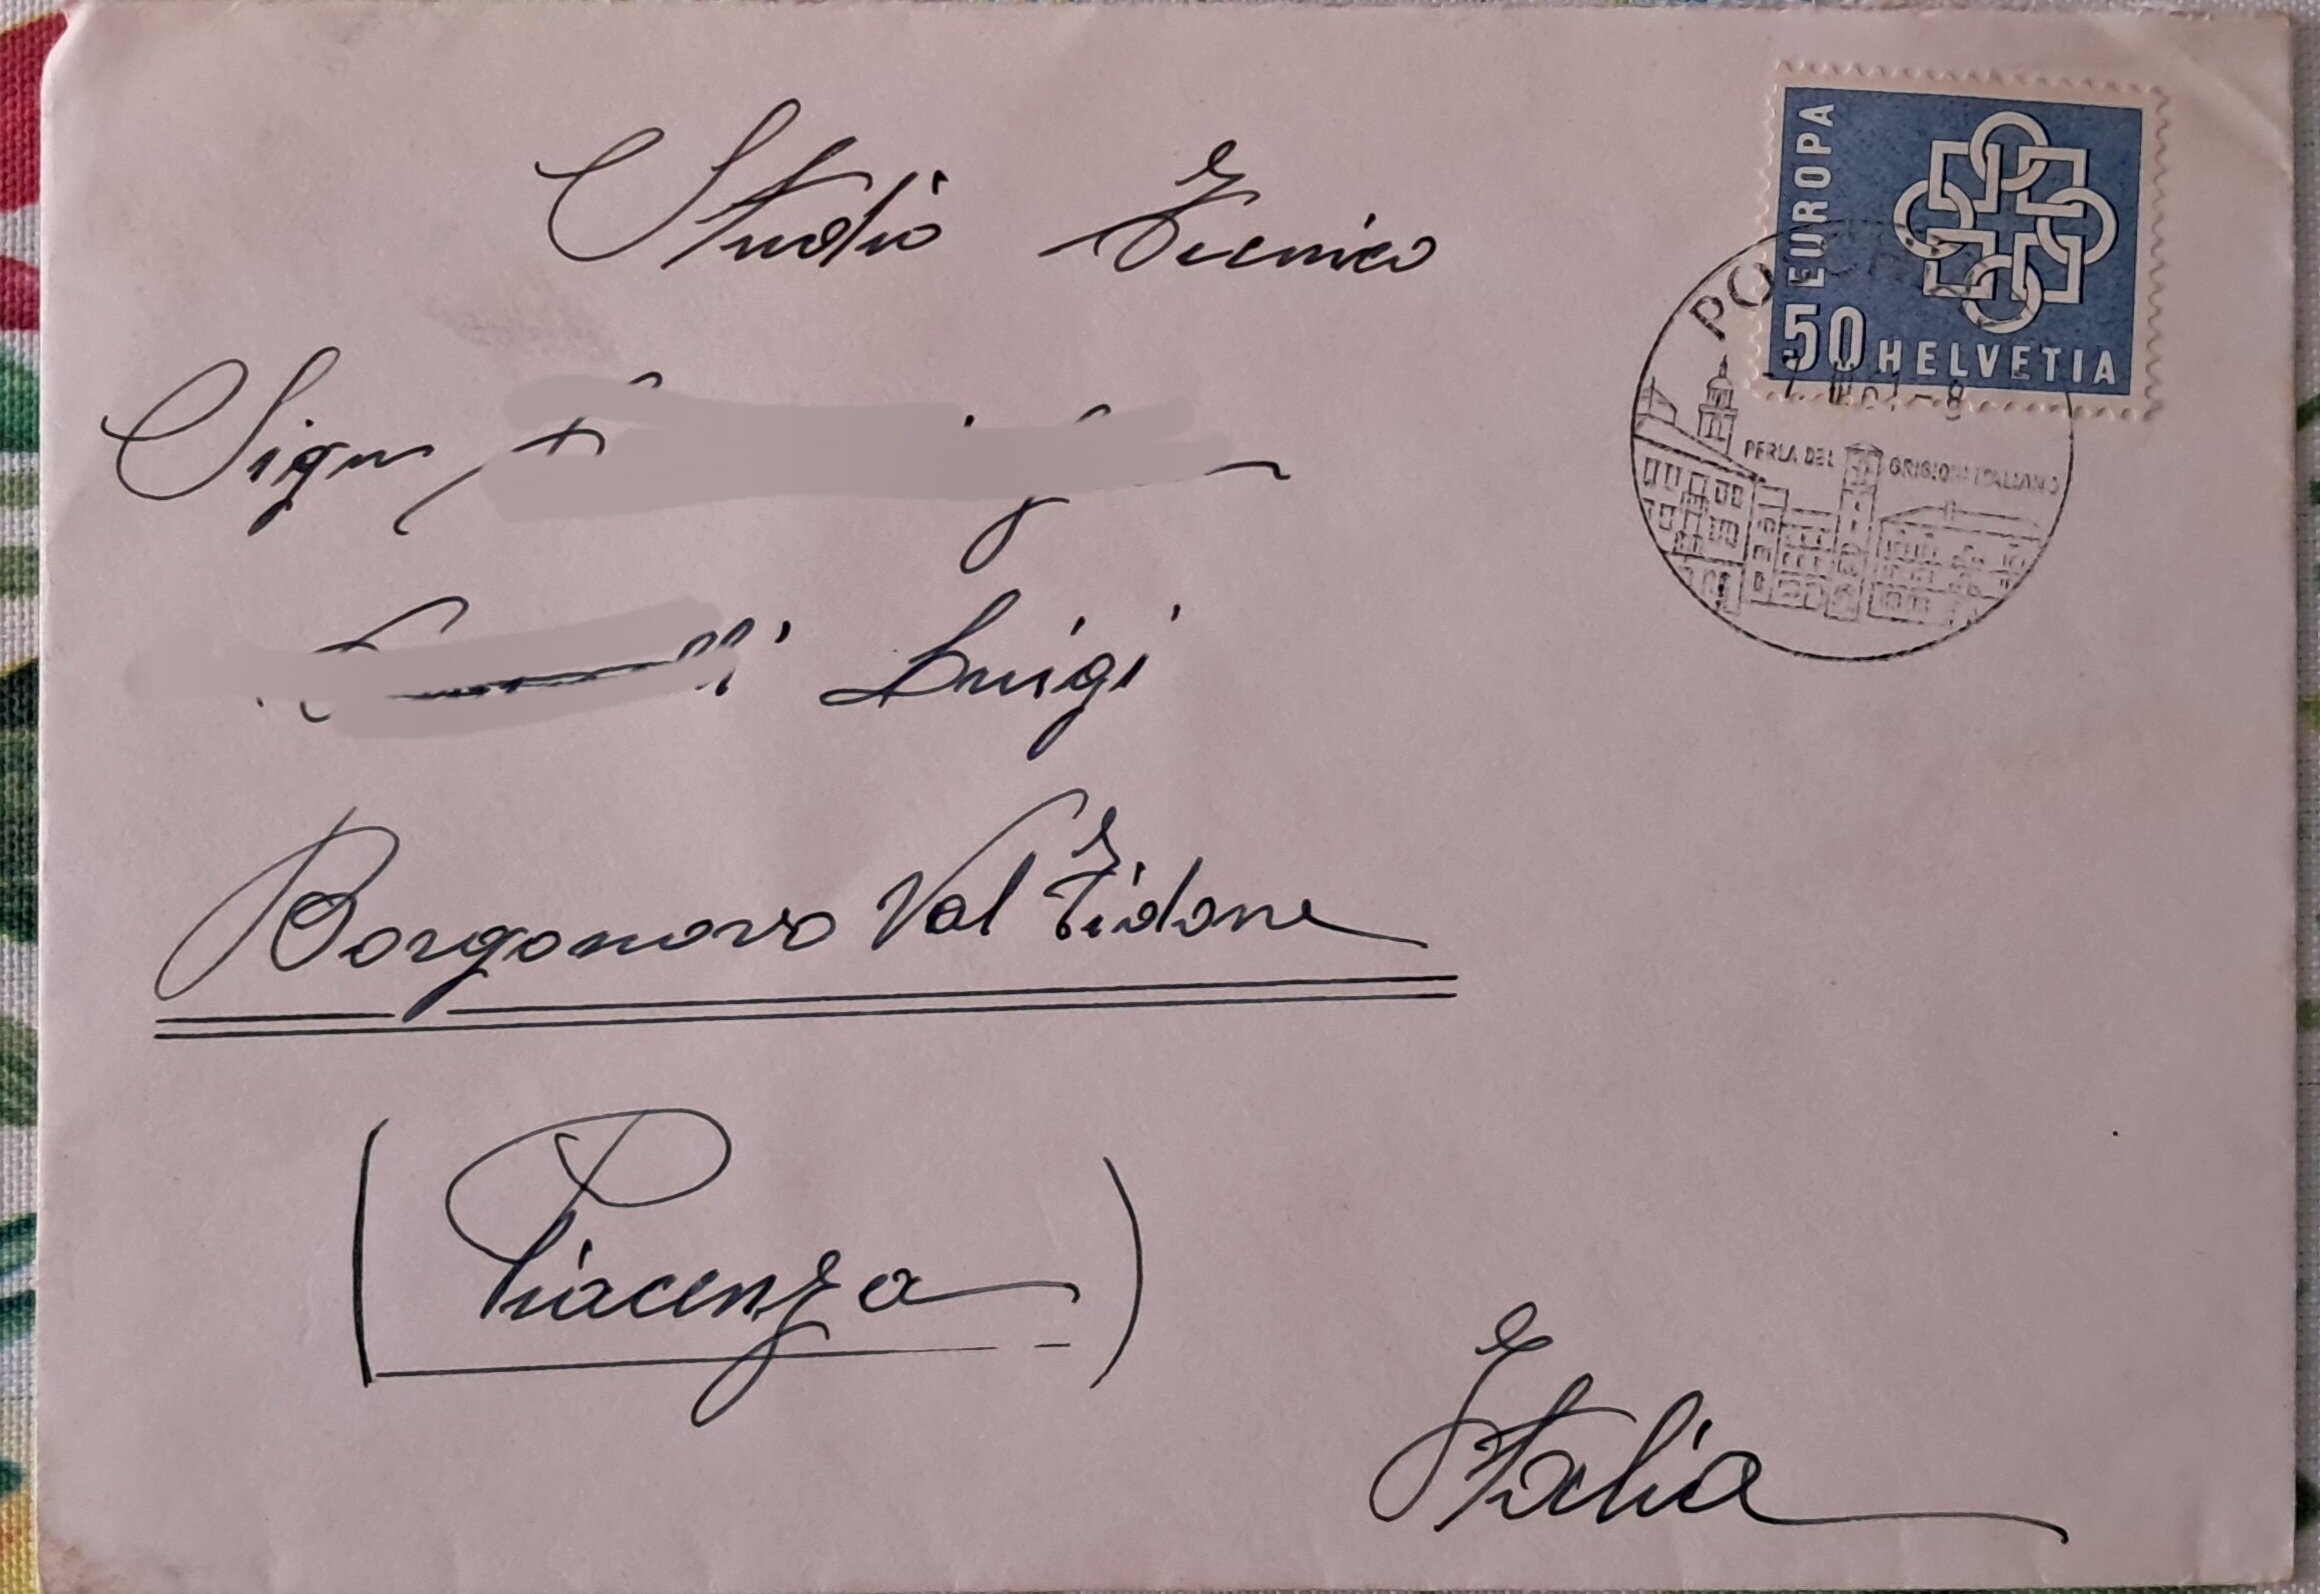 Studio Tecnico
Sigri
Luigi
Borgonovo Val Tidone
(Piacenza)
Italia
EUROPA
50 HELVETIA
PO
PERLA DEL GRIGIONI ITALIANO